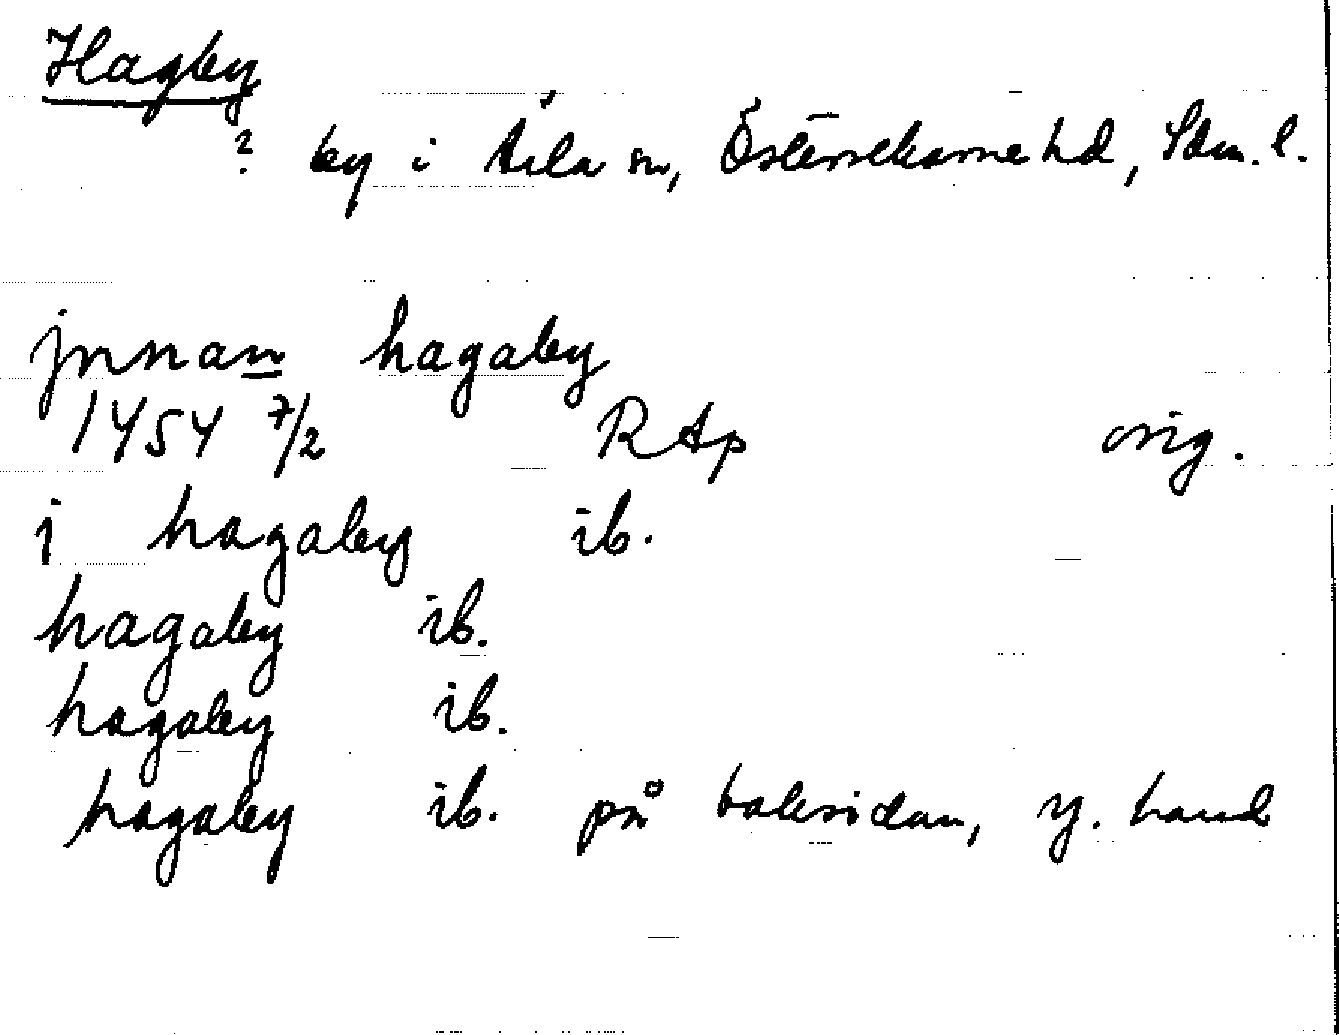 Hagby
? by i Årla sn, Österrekarne hd, Sdm. l.
jnnan hagaby
1454 7/2 RAp orig.
i hagaby ib.
hagaby ib.
hagaby ib.
hagaby ib. på baksidan, y. hand